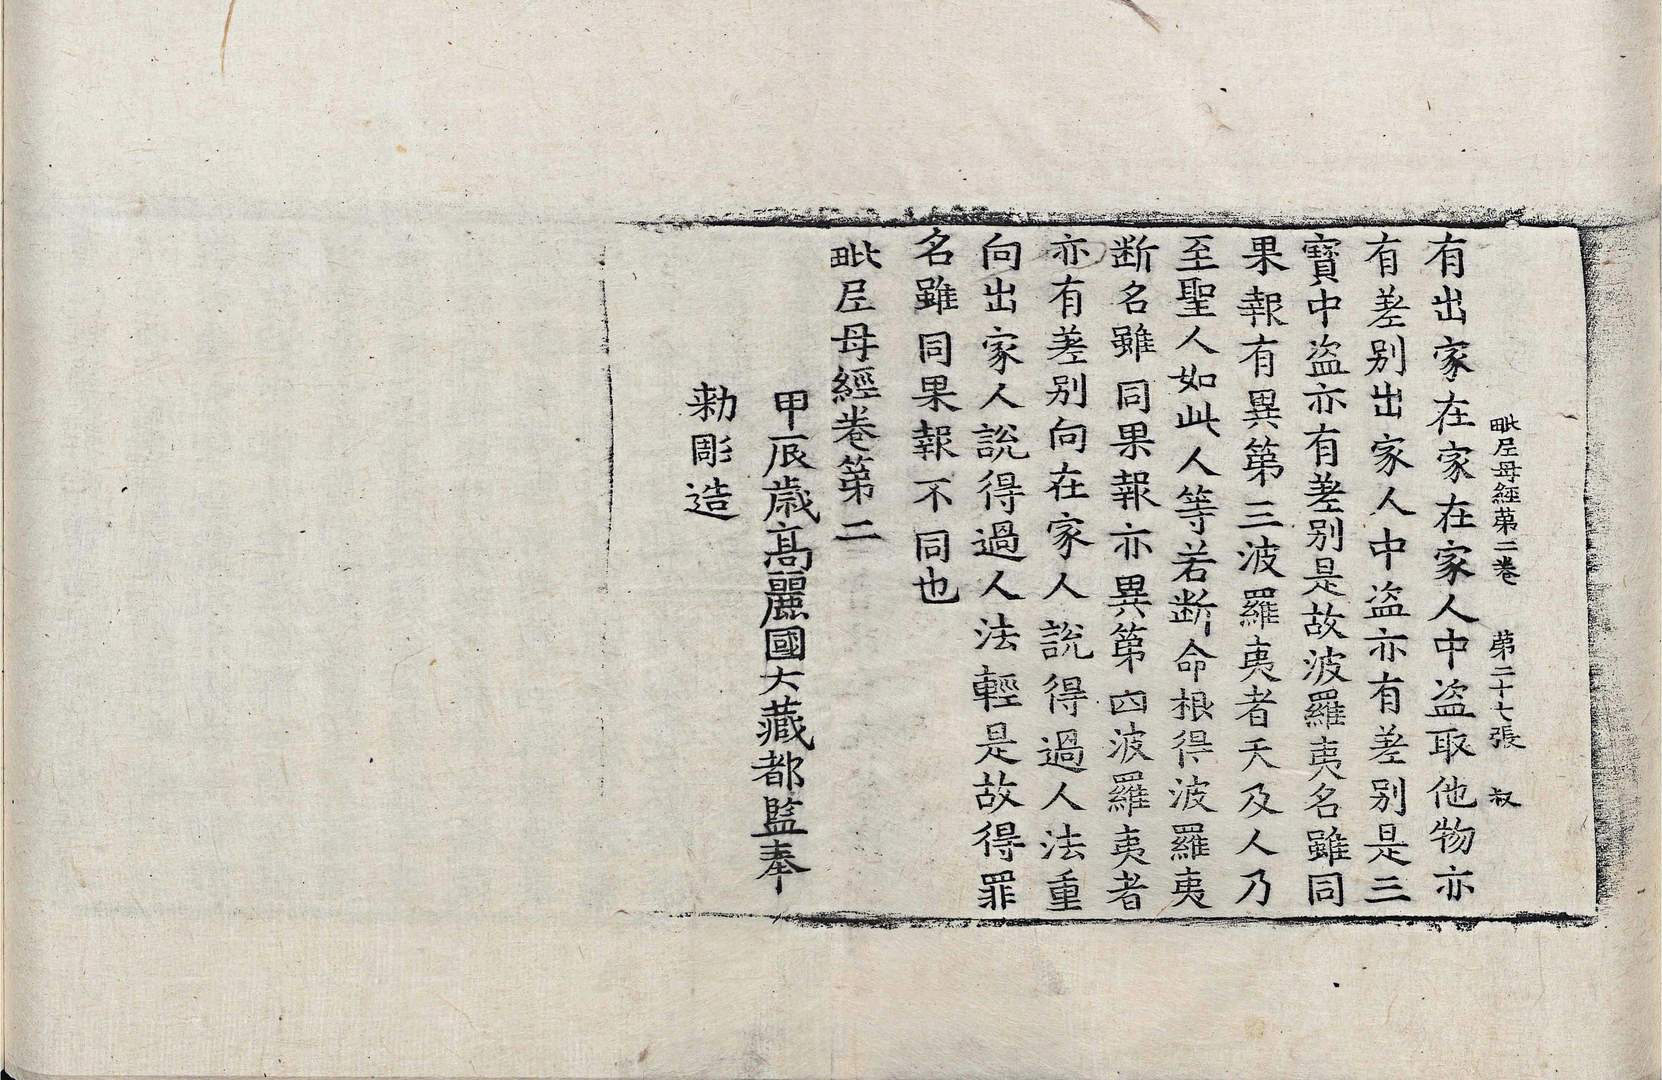 毗尼母經第二卷　第二十七張　叔
有出家在家在家人中盗取他物亦
有差别出家人中盗亦有差别是三
寳中盗亦有差别是故波羅夷名雖同
果報有異第三波羅夷者天及人乃
至聖人如此人等若断命根得波羅夷
断名雖同果報亦異第四波羅夷者
亦有差别向在家人說得過人法重
向出家人說得過人法輕是故得罪
名雖同果報不同也
毗尼母經卷第二
甲辰歳髙麗國大藏都監奉
勑彫造